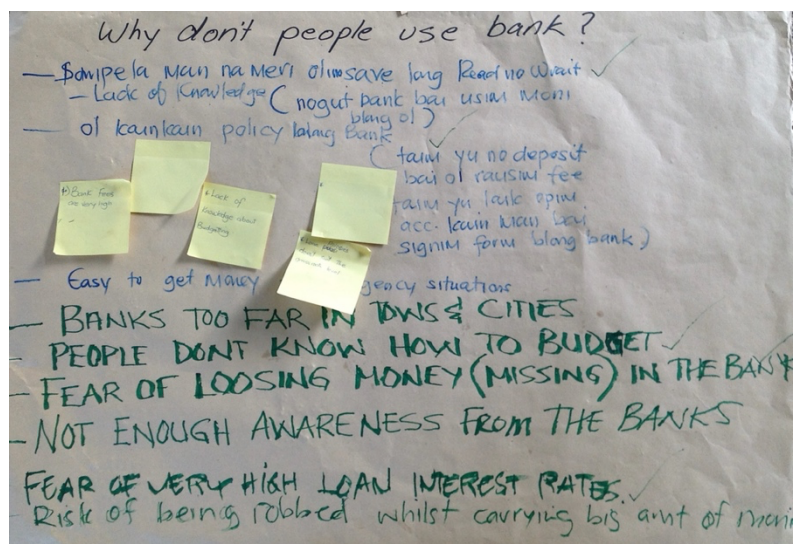 Why don't people use bank?
— Sampela man na Meri olim save long Read no Wrait ✓
– Lack of Knowledge ( nogut bank bai usim Moni
blong ol )
— ol kainkain policy blong Bank
( taim yu no deposit
bai ol rausim fee
taim yu laik opim
acc. kain Man bai
signim form blong bank )
Bank Fees
are very high
Lack of
Knowledge about
Budgeting
— Easy to get Money gency situations
— BANKS TOO FAR IN TOWS & CITIES
— PEOPLE DONT KNOW HOW TO BUDGET ✓
— FEAR OF LOOSING MONEY (MISSING) IN THE BANK
— NOT ENOUGH AWARENESS FROM THE BANKS
FEAR OF VERY HIGH LOAN INTEREST RATES. ✓
– Risk of being robbed whilst carrying big amt of moni